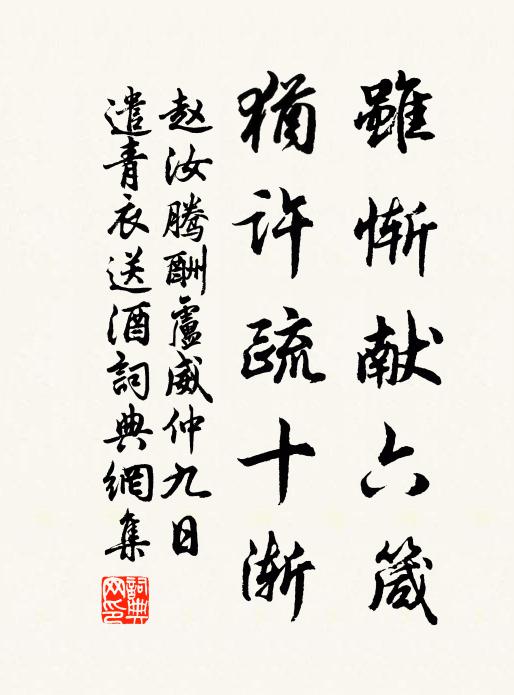 雖惭献六箴
猶许疏十渐
赵汝腾酬盧威仲九日
遣青衣送酒詞典網集
詞典
网印